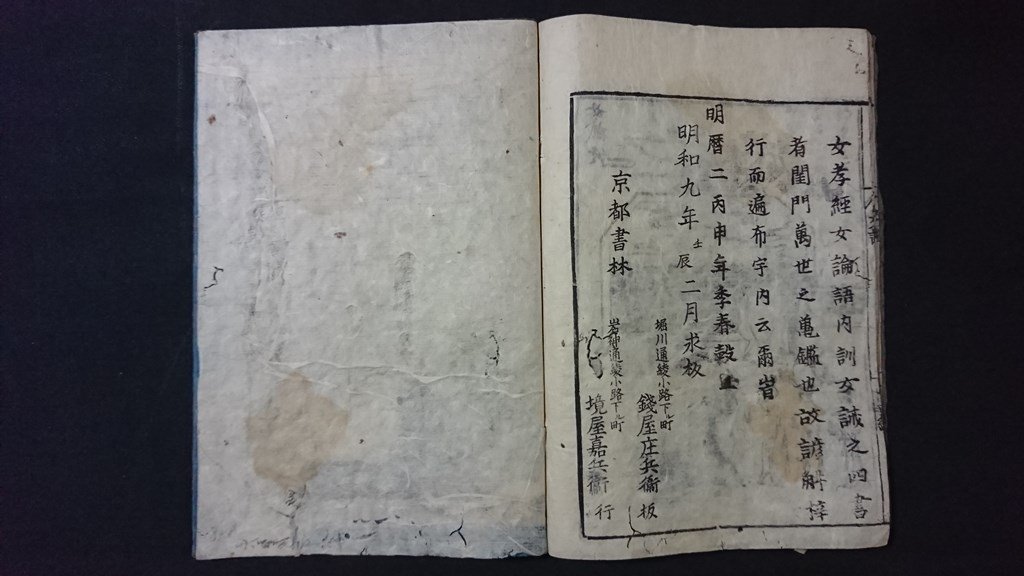 女孝經女論語内訓女誡之四書
者閨門萬世之亀鑑也故諺解梓
行而遍布宇内云爾旹
明暦二丙申年季春穀旦
明和九年壬辰二月求板
京都書林
堀川通綾小路下ル町
錢屋庄兵衞板
岩神通綾小路下ル町
境屋嘉兵衞行